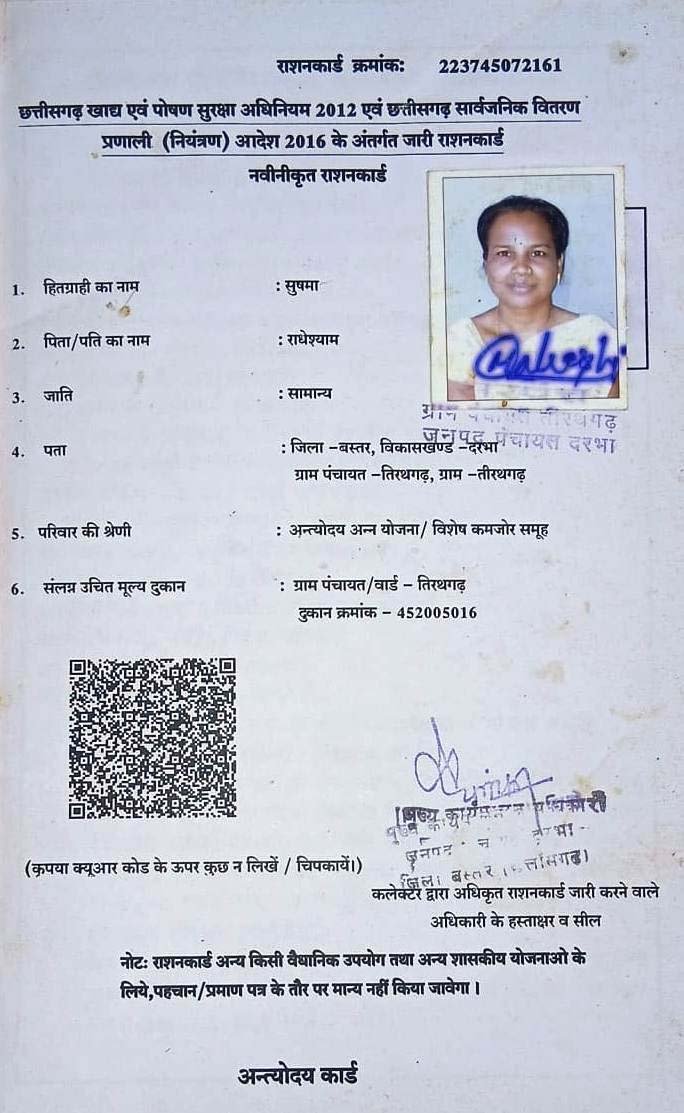 राशनकार्ड क्रमांक: 223745072161
छत्तीसगढ़ खाद्य एवं पोषण सुरक्षा अधिनियम 2012 एवं छत्तीसगढ़ सार्वजनिक वितरण
प्रणाली (नियंत्रण) आदेश 2016 के अंतर्गत जारी राशनकार्ड
नवीनीकृत राशनकार्ड
1. हितग्राही का नाम : सुषमा
2. पिता/पति का नाम : राधेश्याम
3. जाति : सामान्य
ग्राम पंचायत तीरथगढ़
जनपद पंचायत दरभा
4. पता : जिला –बस्तर, विकासखण्ड –दरभा
ग्राम पंचायत –तिरथगढ़, ग्राम –तीरथगढ़
5. परिवार की श्रेणी : अन्त्योदय अन्न योजना/ विशेष कमजोर समूह
6. संलग्न उचित मूल्य दुकान : ग्राम पंचायत/वार्ड – तिरथगढ़
दुकान क्रमांक – 452005016
मुख्य कार्यपालन अधिकारी
जनपद दरभा
जिला बस्तर (छत्तीसगढ़)
(कृपया क्यूआर कोड के ऊपर कुछ न लिखें / चिपकायें।)
कलेक्टर द्वारा अधिकृत राशनकार्ड जारी करने वाले
अधिकारी के हस्ताक्षर व सील
नोटः राशनकार्ड अन्य किसी वैधानिक उपयोग तथा अन्य शासकीय योजनाओ के
लिये,पहचान/प्रमाण पत्र के तौर पर मान्य नहीं किया जावेगा ।
अन्त्योदय कार्ड